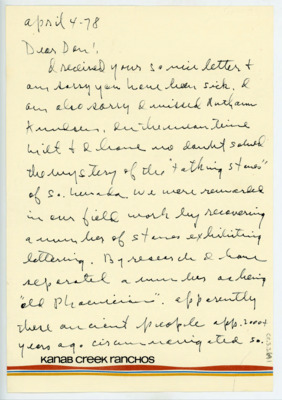 april 4-78
Dear Don!
I received your so nice letter &
am sorry you have been sick. I
am also sorry I missed
Knudsen. In the mean time
Milt & I have no doubt solved
the mystery of the "talking stones"
of so. Nevada We were rewarded
in our field work by recovering
a number of stones exhibiting
lettering. By research I have
separated a number as being
"old Phoenician". apparently
these ancient people app. 3000+
years ago circumnavigated so.
KANAB CREEK RANCHOS